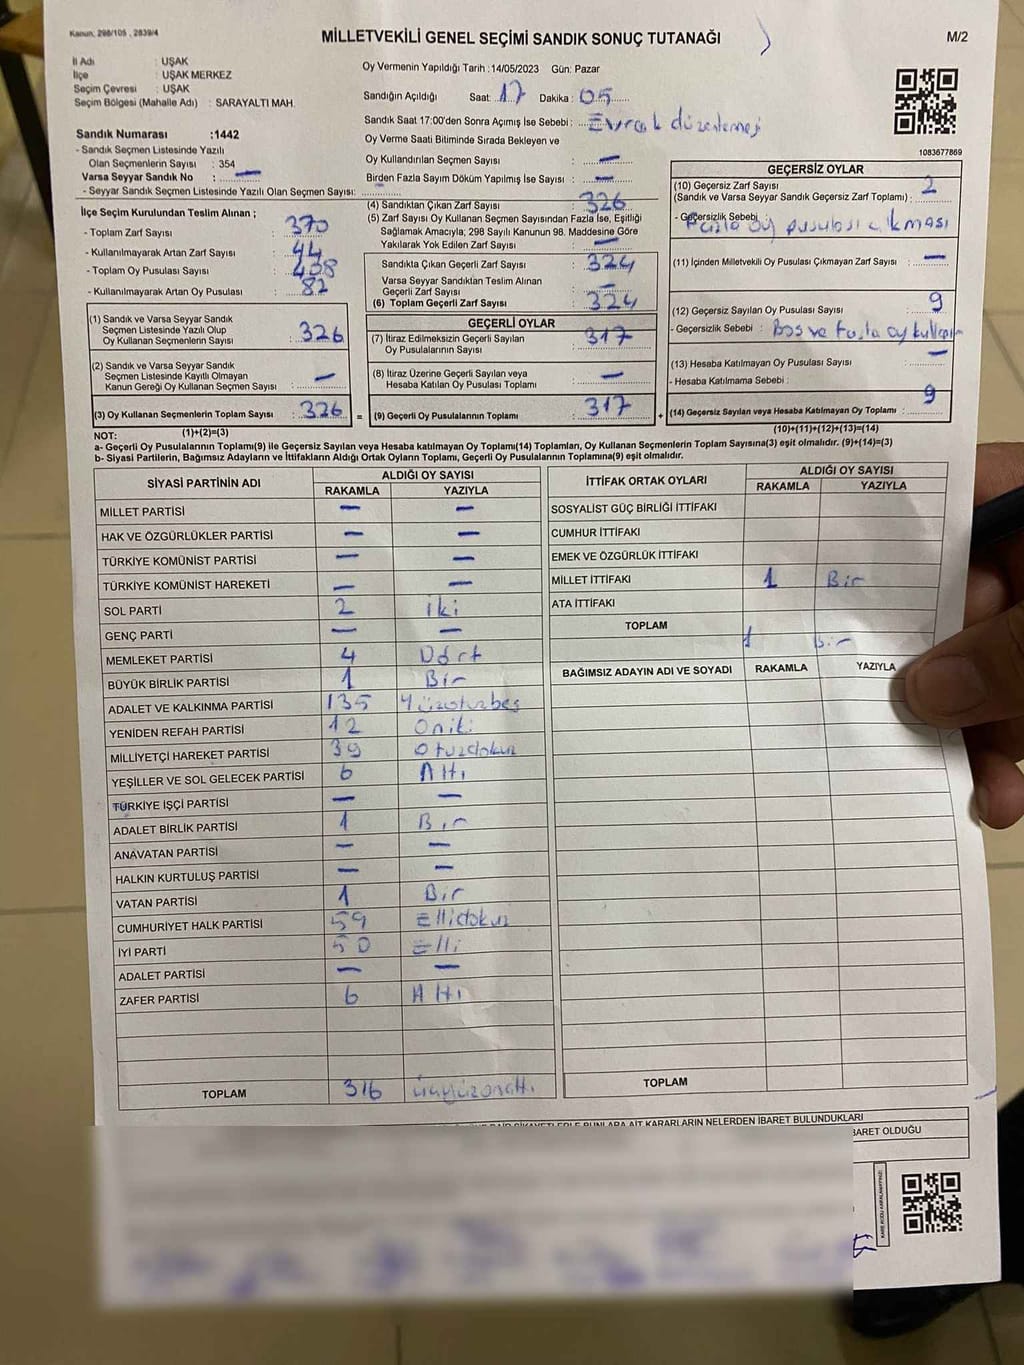 Kanun, 298/105 , 2839/4
MİLLETVEKİLİ GENEL SEÇİMİ SANDIK SONUÇ TUTANAĞI
M/2
İl Adı : UŞAK
İlçe : UŞAK MERKEZ
Seçim Çevresi : UŞAK
Seçim Bölgesi (Mahalle Adı) : SARAYALTI MAH.
Sandık Numarası :1442
- Sandık Seçmen Listesinde Yazılı
Olan Seçmenlerin Sayısı : 354
Varsa Seyyar Sandık No : —
- Seyyar Sandık Seçmen Listesinde Yazılı Olan Seçmen Sayısı:
Oy Vermenin Yapıldığı Tarih :14/05/2023 Gün: Pazar
Sandığın Açıldığı Saat: 17 Dakika : 05
Sandık Saat 17:00'den Sonra Açımış İse Sebebi : Evrak düzenlemesi
Oy Verme Saati Bitiminde Sırada Bekleyen ve
Oy Kullandırılan Seçmen Sayısı : —
Birden Fazla Sayım Döküm Yapılmış İse Sayısı : —
1083677869
İlçe Seçim Kurulundan Teslim Alınan ;
- Toplam Zarf Sayısı : 370
- Kullanılmayarak Artan Zarf Sayısı : 44
- Toplam Oy Pusulası Sayısı : 408
- Kullanılmayarak Artan Oy Pusulası : 82
(1) Sandık ve Varsa Seyyar Sandık
Seçmen Listesinde Yazılı Olup
Oy Kullanan Seçmenlerin Sayısı : 326
(2) Sandık ve Varsa Seyyar Sandık
Seçmen Listesinde Kayıtlı Olmayan
Kanun Gereği Oy Kullanan Seçmen Sayısı : —
(3) Oy Kullanan Seçmenlerin Toplam Sayısı : 326
(4) Sandıktan Çıkan Zarf Sayısı : 326
(5) Zarf Sayısı Oy Kullanan Seçmen Sayısından Fazla İse, Eşitliği
Sağlamak Amacıyla; 298 Sayılı Kanunun 98. Maddesine Göre
Yakılarak Yok Edilen Zarf Sayısı : —
Sandıkta Çıkan Geçerli Zarf Sayısı : 324
Varsa Seyyar Sandıktan Teslim Alınan
Geçerli Zarf Sayısı : —
(6) Toplam Geçerli Zarf Sayısı : 324
GEÇERLİ OYLAR
(7) İtiraz Edilmeksizin Geçerli Sayılan
Oy Pusulalarının Sayısı : 317
(8) İtiraz Üzerine Geçerli Sayılan veya
Hesaba Katılan Oy Pusulası Toplamı : —
= (9) Geçerli Oy Pusulalarının Toplamı : 317
GEÇERSİZ OYLAR
(10) Geçersiz Zarf Sayısı
(Sandık ve Varsa Seyyar Sandık Geçersiz Zarf Toplamı) : 2
- Geçersizlik Sebebi : Fazla oy pusulası çıkması
(11) İçinden Milletvekili Oy Pusulası Çıkmayan Zarf Sayısı : —
(12) Geçersiz Sayılan Oy Pusulası Sayısı : 9
- Geçersizlik Sebebi : Boş ve Fazla oy
(13) Hesaba Katılmayan Oy Pusulası Sayısı : —
- Hesaba Katılmama Sebebi :
+ (14) Geçersiz Sayılan veya Hesaba Katılmayan Oy Toplamı : 9
(1)+(2)=(3)
(10)+(11)+(12)+(13)=(14)
NOT:
a- Geçerli Oy Pusulalarının Toplamı(9) ile Geçersiz Sayılan veya Hesaba katılmayan Oy Toplamı(14) Toplamları, Oy Kullanan Seçmenlerin Toplam Sayısına(3) eşit olmalıdır. (9)+(14)=(3)
b- Siyasi Partilerin, Bağımsız Adayların ve İttifakların Aldığı Ortak Oyların Toplamı, Geçerli Oy Pusulalarının Toplamına(9) eşit olmalıdır.
SİYASİ PARTİNİN ADI ALDIĞI OY SAYISI
RAKAMLA YAZIYLA
MİLLET PARTİSİ — —
HAK VE ÖZGÜRLÜKLER PARTİSİ — —
TÜRKİYE KOMÜNİST PARTİSİ — —
TÜRKİYE KOMÜNİST HAREKETİ — —
SOL PARTİ 2 iki
GENÇ PARTİ — —
MEMLEKET PARTİSİ 4 Dört
BÜYÜK BİRLİK PARTİSİ 1 Bir
ADALET VE KALKINMA PARTİSİ 135 Yüzotuzbeş
YENİDEN REFAH PARTİSİ 12 Oniki
MİLLİYETÇİ HAREKET PARTİSİ 39 Otuzdokuz
YEŞİLLER VE SOL GELECEK PARTİSİ 6 Altı
TÜRKİYE İŞÇİ PARTİSİ — —
ADALET BİRLİK PARTİSİ 1 Bir
ANAVATAN PARTİSİ — —
HALKIN KURTULUŞ PARTİSİ — —
VATAN PARTİSİ 1 Bir
CUMHURİYET HALK PARTİSİ 59 Ellidokuz
İYİ PARTİ 50 Elli
ADALET PARTİSİ — —
ZAFER PARTİSİ 6 Altı
TOPLAM 316 üçyüzonaltı
İTTİFAK ORTAK OYLARI ALDIĞI OY SAYISI
RAKAMLA YAZIYLA
SOSYALİST GÜÇ BİRLİĞİ İTTİFAKI
CUMHUR İTTİFAKI
EMEK VE ÖZGÜRLÜK İTTİFAKI
MİLLET İTTİFAKI 1 Bir
ATA İTTİFAKI
TOPLAM 1 Bir
BAĞIMSIZ ADAYIN ADI VE SOYADI RAKAMLA YAZIYLA
TOPLAM
AİT KARARLARIN NELERDEN İBARET BULUNDUKLARI
BARET OLDUĞU